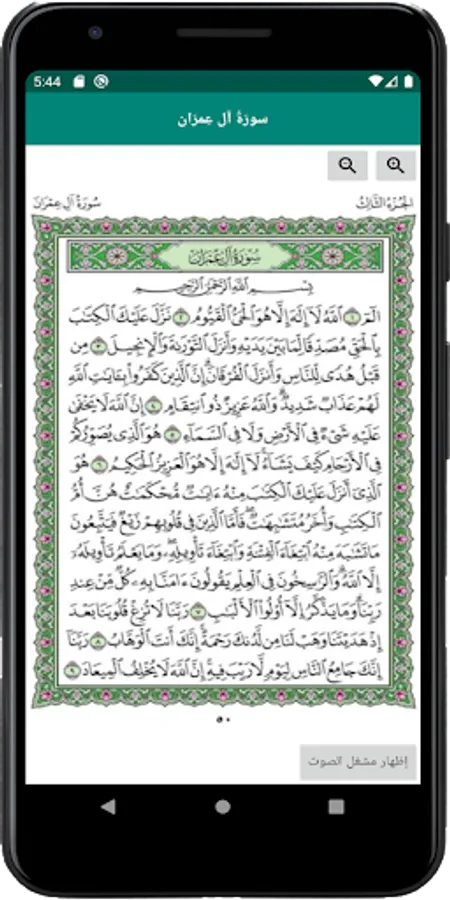 5:44
سورة آل عمران
سُورَةُ آلِ عِمْرَانَ الجُزْءُ الثَّالِثُ
سُورَةُ آلِ عِمْرَانَ
بِسْمِ اللَّهِ الرَّحْمَٰنِ الرَّحِيمِ
الٓمٓ ١ ٱللَّهُ لَآ إِلَٰهَ إِلَّا هُوَ ٱلْحَىُّ ٱلْقَيُّومُ ٢ نَزَّلَ عَلَيْكَ ٱلْكِتَٰبَ
بِٱلْحَقِّ مُصَدِّقًا لِّمَا بَيْنَ يَدَيْهِ وَأَنزَلَ ٱلتَّوْرَىٰةَ وَٱلْإِنجِيلَ ٣ مِن
قَبْلُ هُدًى لِّلنَّاسِ وَأَنزَلَ ٱلْفُرْقَانَ إِنَّ ٱلَّذِينَ كَفَرُوا۟ بِـَٔايَٰتِ ٱللَّهِ
لَهُمْ عَذَابٌ شَدِيدٌ وَٱللَّهُ عَزِيزٌ ذُو ٱنتِقَامٍ ٤ إِنَّ ٱللَّهَ لَا يَخْفَىٰ
عَلَيْهِ شَىْءٌ فِى ٱلْأَرْضِ وَلَا فِى ٱلسَّمَآءِ ٥ هُوَ ٱلَّذِى يُصَوِّرُكُمْ
فِى ٱلْأَرْحَامِ كَيْفَ يَشَآءُ لَآ إِلَٰهَ إِلَّا هُوَ ٱلْعَزِيزُ ٱلْحَكِيمُ ٦ هُوَ
ٱلَّذِىٓ أَنزَلَ عَلَيْكَ ٱلْكِتَٰبَ مِنْهُ ءَايَٰتٌ مُّحْكَمَٰتٌ هُنَّ أُمُّ
ٱلْكِتَٰبِ وَأُخَرُ مُتَشَٰبِهَٰتٌ فَأَمَّا ٱلَّذِينَ فِى قُلُوبِهِمْ زَيْغٌ فَيَتَّبِعُونَ
مَا تَشَٰبَهَ مِنْهُ ٱبْتِغَآءَ ٱلْفِتْنَةِ وَٱبْتِغَآءَ تَأْوِيلِهِۦ وَمَا يَعْلَمُ تَأْوِيلَهُۥٓ
إِلَّا ٱللَّهُ وَٱلرَّٰسِخُونَ فِى ٱلْعِلْمِ يَقُولُونَ ءَامَنَّا بِهِۦ كُلٌّ مِّنْ عِندِ
رَبِّنَا وَمَا يَذَّكَّرُ إِلَّآ أُو۟لُوا۟ ٱلْأَلْبَٰبِ ٧ رَبَّنَا لَا تُزِغْ قُلُوبَنَا بَعْدَ
إِذْ هَدَيْتَنَا وَهَبْ لَنَا مِن لَّدُنكَ رَحْمَةً إِنَّكَ أَنتَ ٱلْوَهَّابُ ٨ رَبَّنَآ
إِنَّكَ جَامِعُ ٱلنَّاسِ لِيَوْمٍ لَّا رَيْبَ فِيهِ إِنَّ ٱللَّهَ لَا يُخْلِفُ ٱلْمِيعَادَ ٩
٥٠
إظهار مشغل الصوت